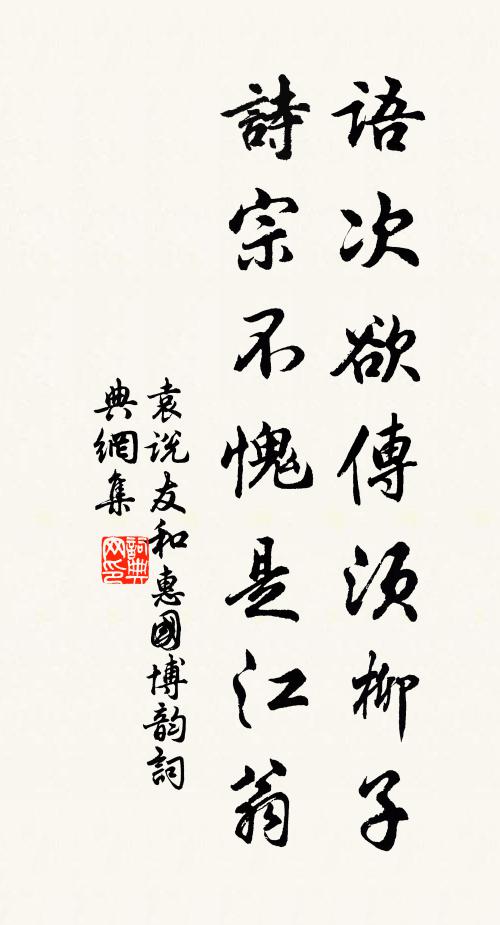 語次欲傳須柳子
詩宗不愧是江翁
袁说友和惠國博韵詞
典網集
詞典网印